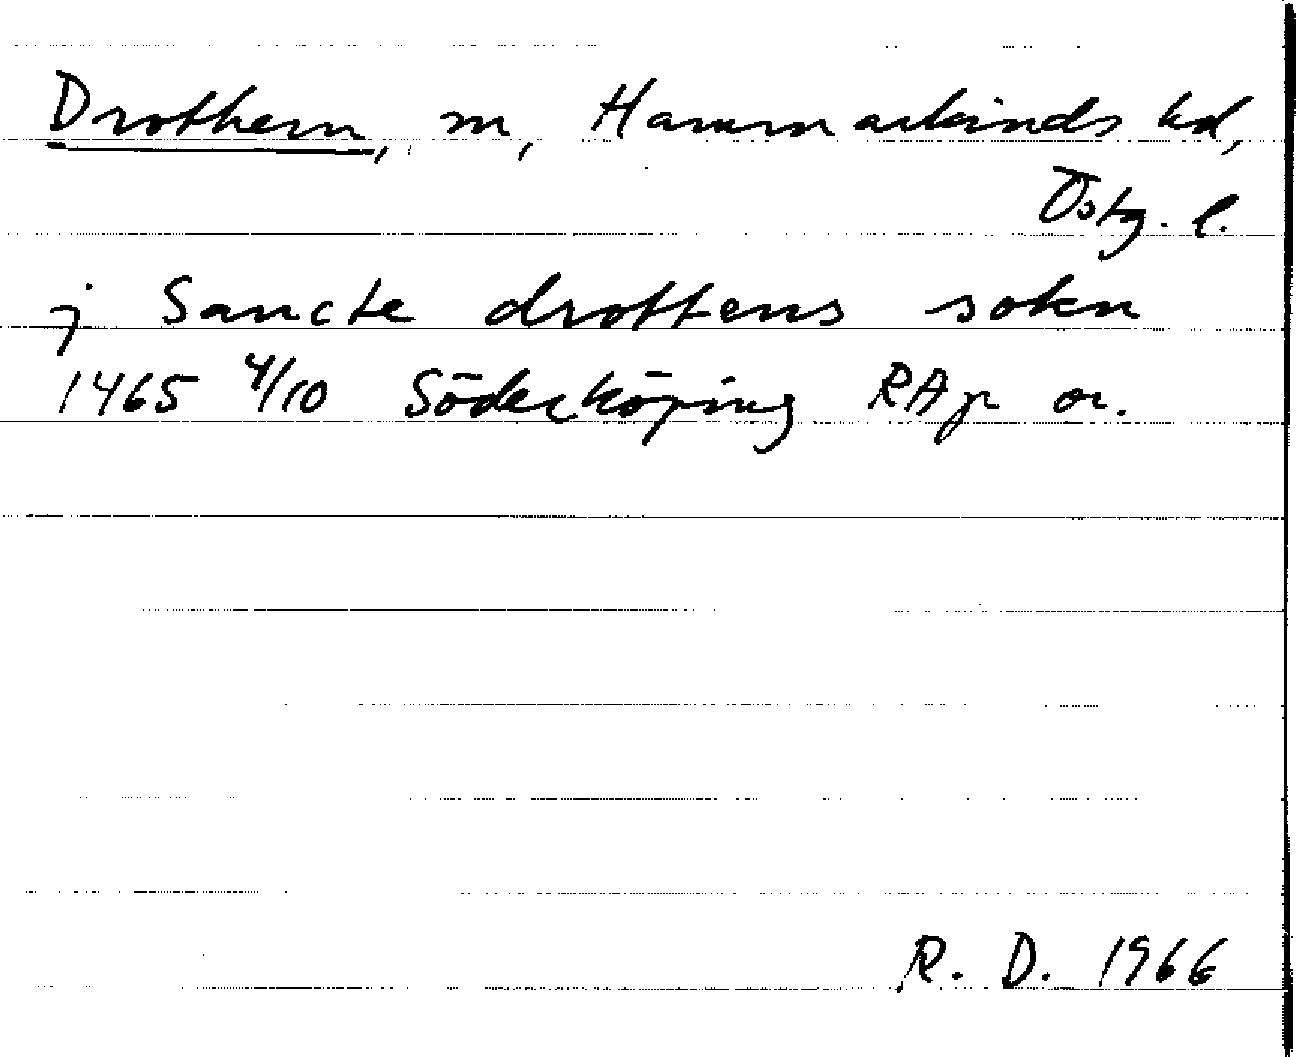 Drothem, sn, Hammarkinds hd,
Östg. l.
j Sancte drottens sokn
1465 4/10 Söderköping RAp or.
R. D. 1966